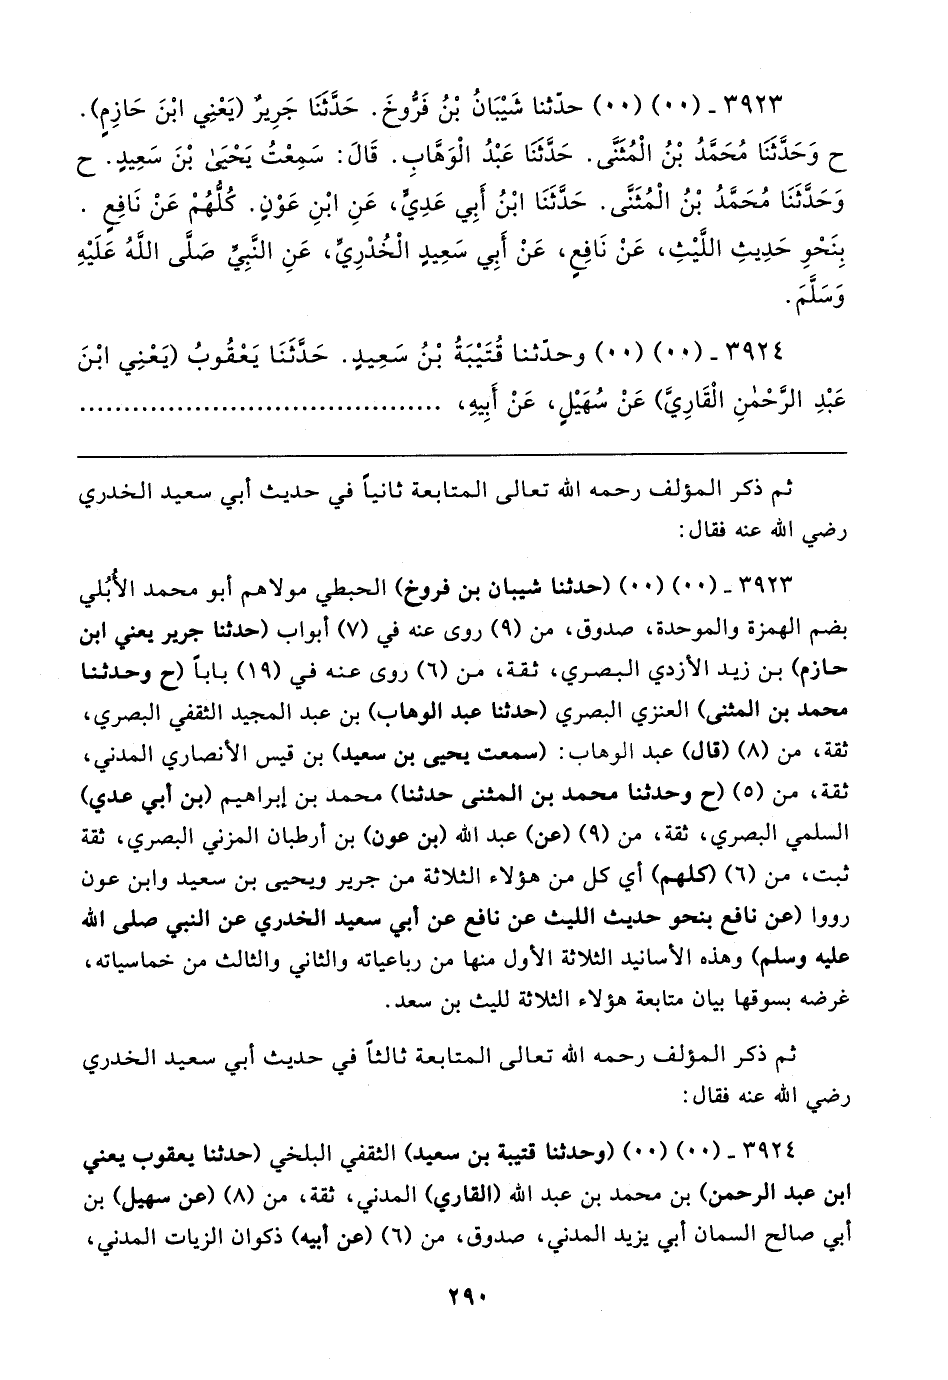 ٣٩٢٣ ـ (٠٠) (٠٠) حدّثنا شَيْبَانُ بْنُ فَرُّوخَ. حَدَّثَنَا جَرِيرٌ (يَعْنِي ابْنَ حَازِمٍ).
ح وَحَدَّثَنَا مُحَمَّدُ بْنُ الْمُثَنَّى. حَدَّثَنَا عَبْدُ الْوَهَّابِ. قَالَ: سَمِعْتُ يَحْيَىٰ بْنَ سَعِيدٍ. ح
وَحَدَّثَنَا مُحَمَّدُ بْنُ الْمُثَنَّى. حَدَّثَنَا ابْنُ أَبِي عَدِيٍّ، عَنِ ابْنِ عَوْنٍ. كُلُّهُمْ عَنْ نَافِعٍ .
بِنَحْوِ حَدِيثِ اللَّيْثِ، عَنْ نَافِعٍ، عَنْ أَبِي سَعِيدٍ الْخُدْرِيِّ، عَنِ النَّبِيِّ صَلَّى اللَّهُ عَلَيْهِ
وَسَلَّمَ.
٣٩٢٤ ـ (٠٠) (٠٠) وحدّثنا قُتَيْبَةُ بْنُ سَعِيدٍ. حَدَّثَنَا يَعْقُوبُ (يَعْنِي ابْنَ
عَبْدِ الرَّحْمٰنِ الْقَارِيَّ) عَنْ سُهَيْلٍ، عَنْ أَبِيهِ، ........................................
ثم ذكر المؤلف رحمه الله تعالى المتابعة ثانياً في حديث أبي سعيد الخدري
رضي الله عنه فقال:
٣٩٢٣ ـ (٠٠) (٠٠) (حدثنا شيبان بن فروخ) الحبطي مولاهم أبو محمد الأُبُلي
بضم الهمزة والموحدة، صدوق، من (٩) روى عنه في (٧) أبواب (حدثنا جرير يعني ابن
حازم) بن زيد الأزدي البصري، ثقة، من (٦) روى عنه في (١٩) باباً (ح وحدثنا
محمد بن المثنى) العنزي البصري (حدثنا عبد الوهاب) بن عبد المجيد الثقفي البصري،
ثقة، من (٨) (قال) عبد الوهاب: (سمعت يحيى بن سعيد) بن قيس الأنصاري المدني،
ثقة، من (٥) (ح وحدثنا محمد بن المثنى حدثنا) محمد بن إبراهيم (بن أبي عدي)
السلمي البصري، ثقة، من (٩) (عن) عبد الله (بن عون) بن أرطبان المزني البصري، ثقة
ثبت، من (٦) (كلهم) أي كل من هؤلاء الثلاثة من جرير ويحيى بن سعيد وابن عون
رووا (عن نافع بنحو حديث الليث عن نافع عن أبي سعيد الخدري عن النبي صلى الله
عليه وسلم) وهذه الأسانيد الثلاثة الأول منها من رباعياته والثاني والثالث من خماسياته،
غرضه بسوقها بيان متابعة هؤلاء الثلاثة لليث بن سعد.
ثم ذكر المؤلف رحمه الله تعالى المتابعة ثالثاً في حديث أبي سعيد الخدري
رضي الله عنه فقال:
٣٩٢٤ ـ (٠٠) (٠٠) (وحدثنا قتيبة بن سعيد) الثقفي البلخي (حدثنا يعقوب يعني
ابن عبد الرحمن) بن محمد بن عبد الله (القاري) المدني، ثقة، من (٨) (عن سهيل) بن
أبي صالح السمان أبي يزيد المدني، صدوق، من (٦) (عن أبيه) ذكوان الزيات المدني،
٢٩٠